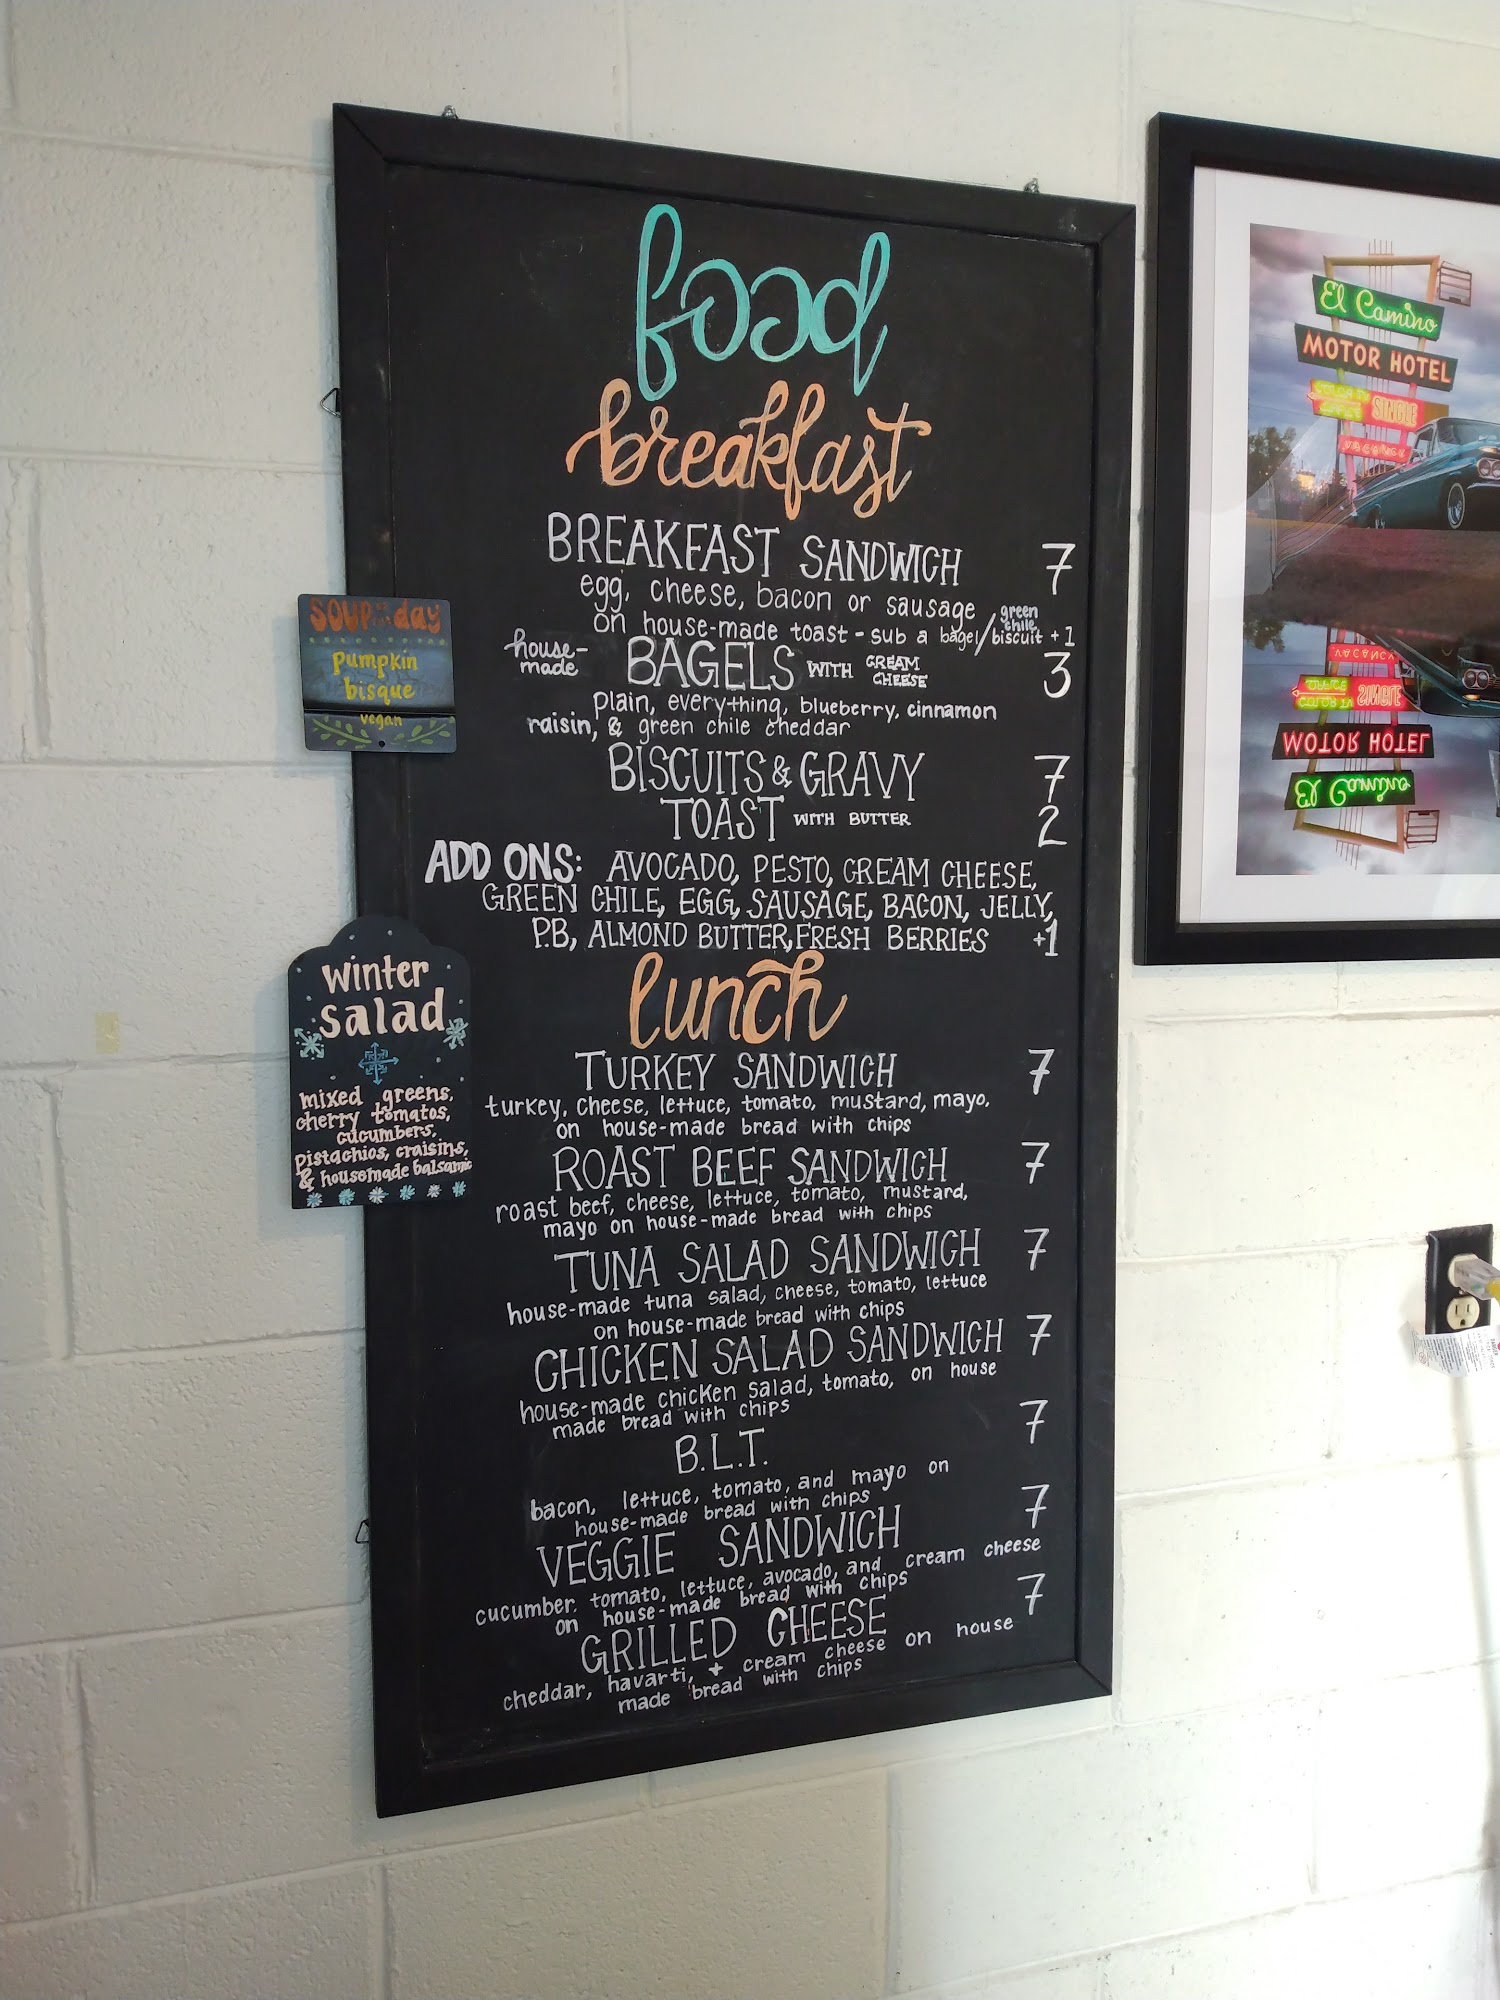 food
breakfast
BREAKFAST SANDWICH 7
egg, cheese, bacon or sausage
on house-made toast - sub a bagel/green chile biscuit +1
house-made BAGELS WITH CREAM CHEESE 3
plain, everything, blueberry, cinnamon
raisin, & green chile cheddar
BISCUITS & GRAVY 7
TOAST WITH BUTTER 2
ADD ONS: AVOCADO, PESTO, CREAM CHEESE,
GREEN CHILE, EGG, SAUSAGE, BACON, JELLY,
P.B, ALMOND BUTTER, FRESH BERRIES +1
lunch
TURKEY SANDWICH 7
turkey, cheese, lettuce, tomato, mustard, mayo,
on house-made bread with chips
ROAST BEEF SANDWICH 7
roast beef, cheese, lettuce, tomato, mustard,
mayo on house-made bread with chips
TUNA SALAD SANDWICH 7
house-made tuna salad, cheese, tomato, lettuce
on house-made bread with chips
CHICKEN SALAD SANDWICH 7
house-made chicken salad, tomato, on house
made bread with chips
B.L.T. 7
bacon, lettuce, tomato, and mayo on
house-made bread with chips
VEGGIE SANDWICH 7
cucumber, tomato, lettuce, avocado, and cream cheese
on house-made bread with chips
GRILLED CHEESE 7
cheddar, havarti, + cream cheese on house
made bread with chips
SOUP of the day
pumpkin
bisque
vegan
winter
salad
mixed greens,
cherry tomatos,
cucumbers,
pistachios, craisins,
& housemade balsamic
El Camino
MOTOR HOTEL
SINGLE
VACANCY
VACANCY
SINGLE
MOTOR HOTEL
El Camino